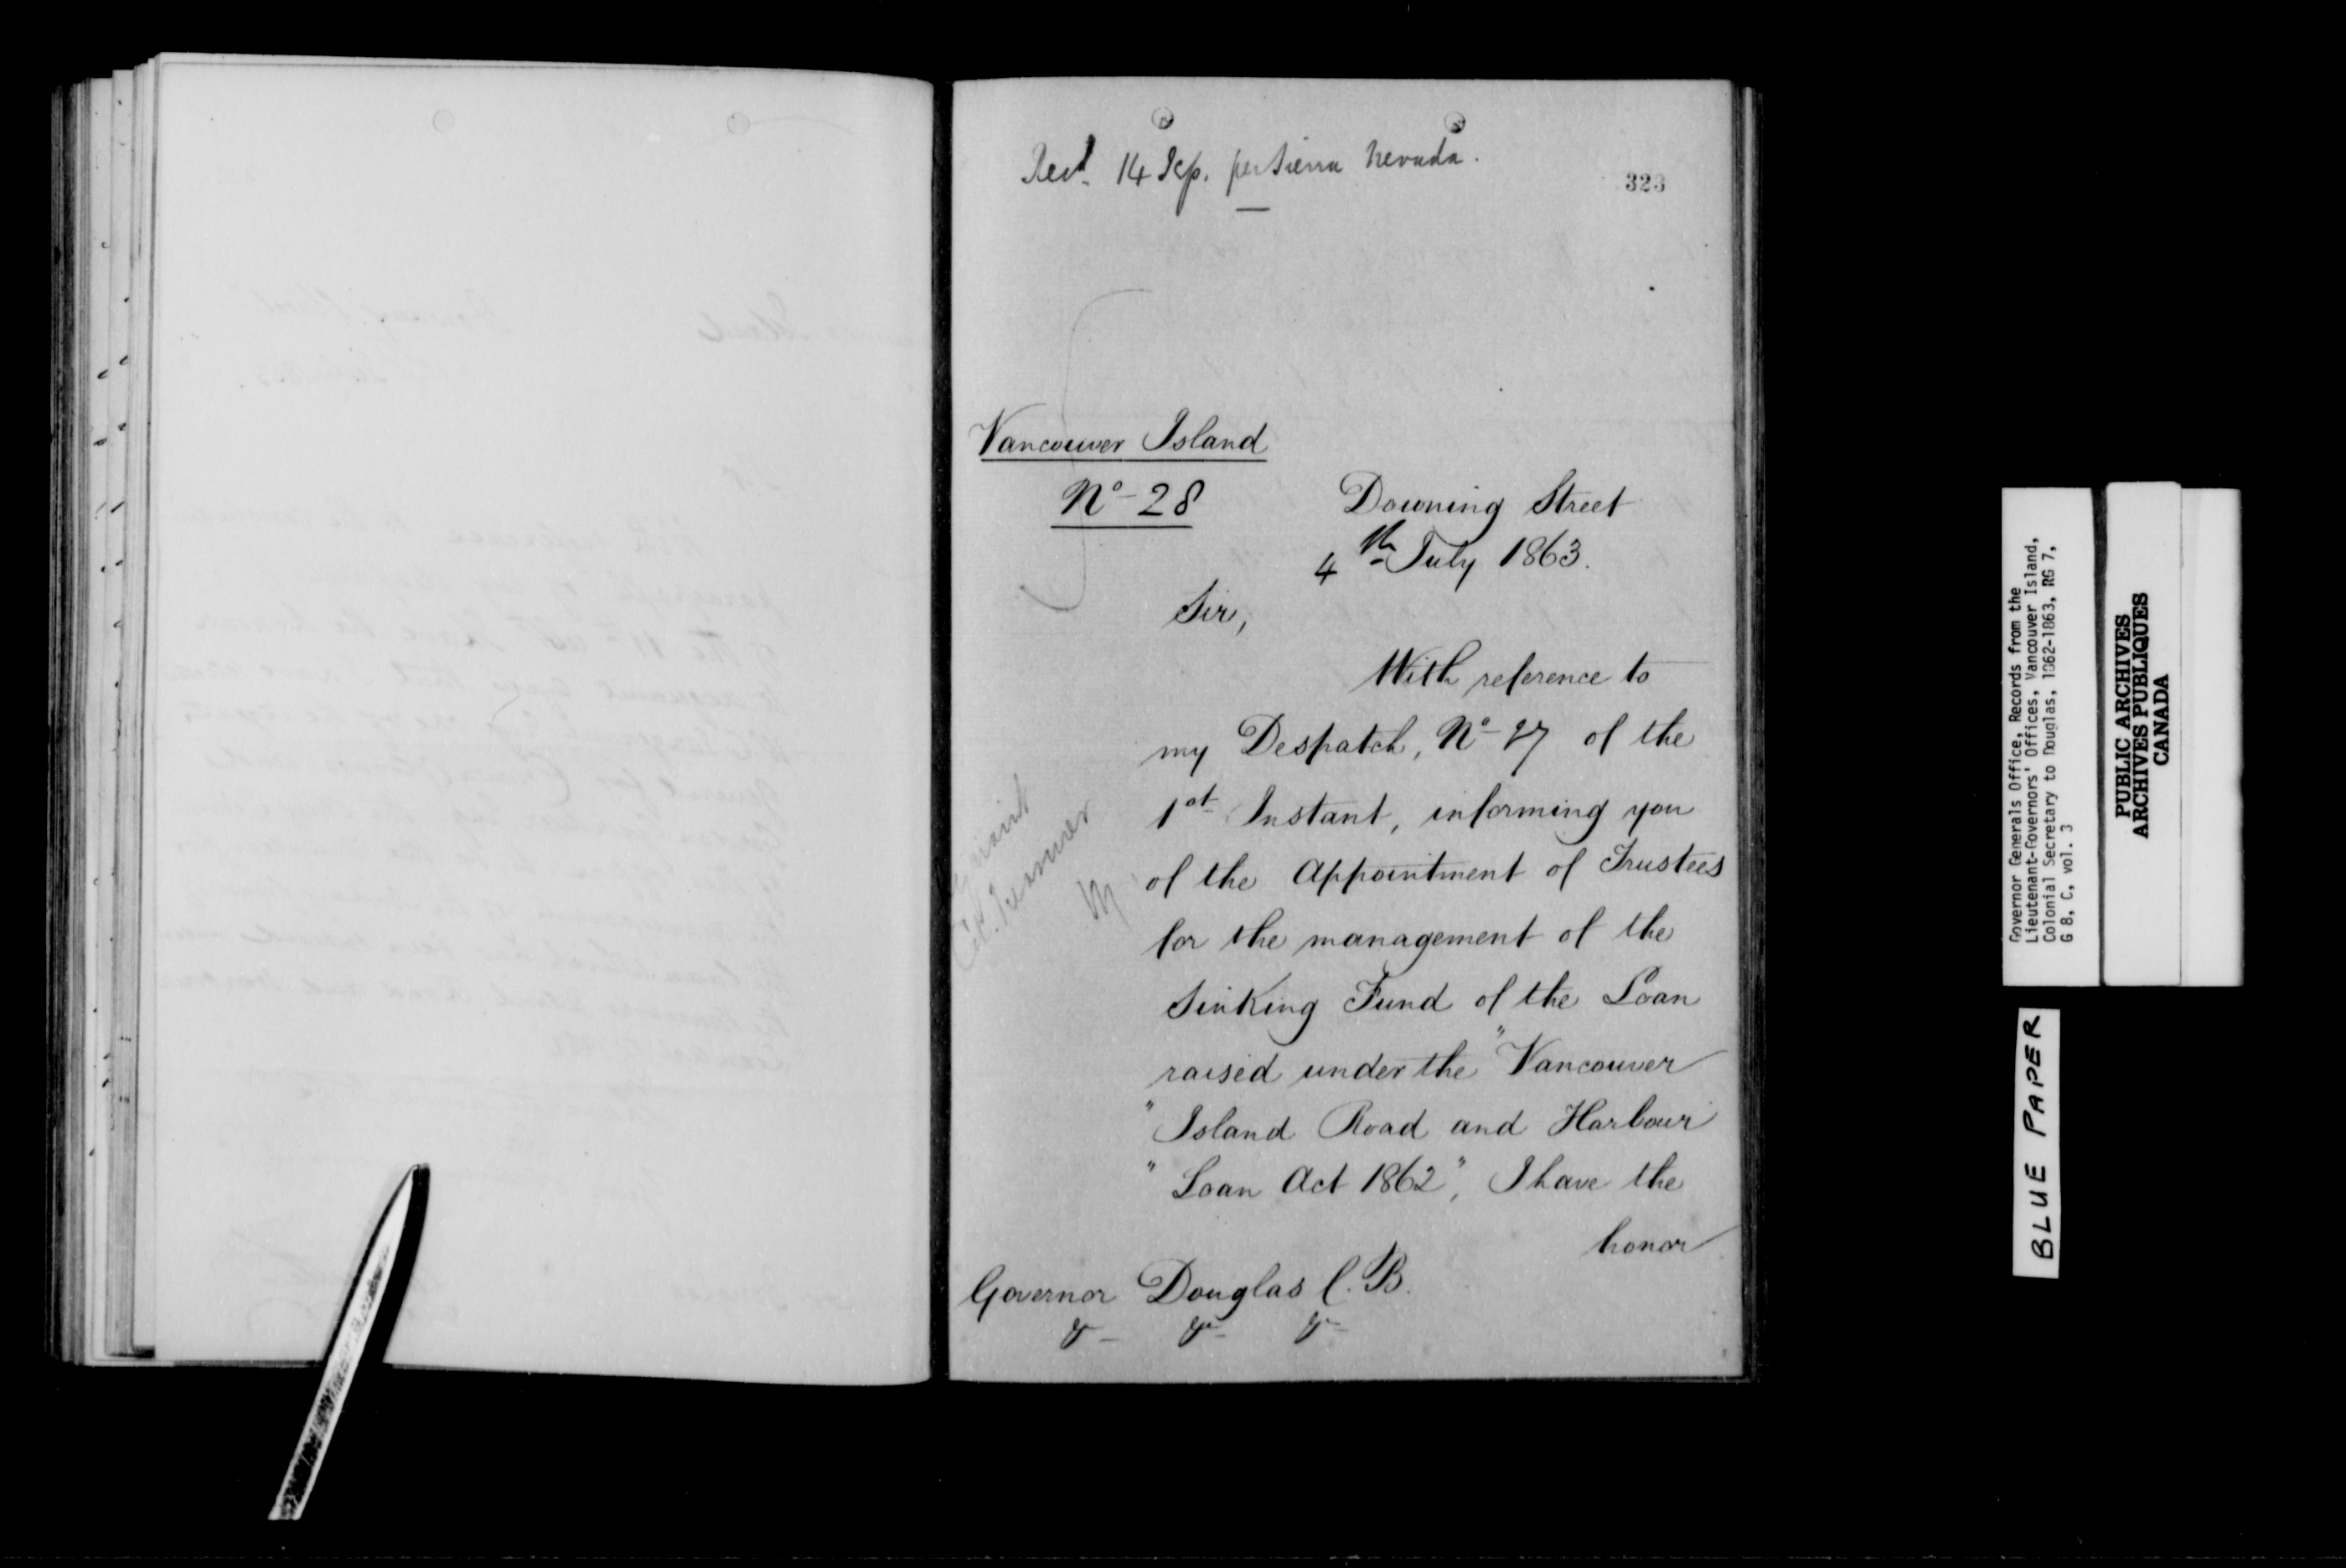 Recd. 14 Sep. per Sierra Nevada.
323
Vancouver Island
No 28
Downing Street
4th July 1863.
Sir,
With reference to
my Despatch, No 27 of the
1st Instant, informing you
of the Appointment of Trustees
for the management of the
Sinking Fund of the Loan
raised under the "Vancouver
"Island Road and Harbour
"Loan Act 1862", I have the
honor
Governor Douglas C.B.
&c &c &c
Governor Generals Office, Records from the
Lieutenant-Governors' Offices, Vancouver Island,
Colonial Secretary to Douglas, 1862-1863, RG 7,
G 8, C, vol. 3
PUBLIC ARCHIVES
ARCHIVES PUBLIQUES
CANADA
BLUE PAPER